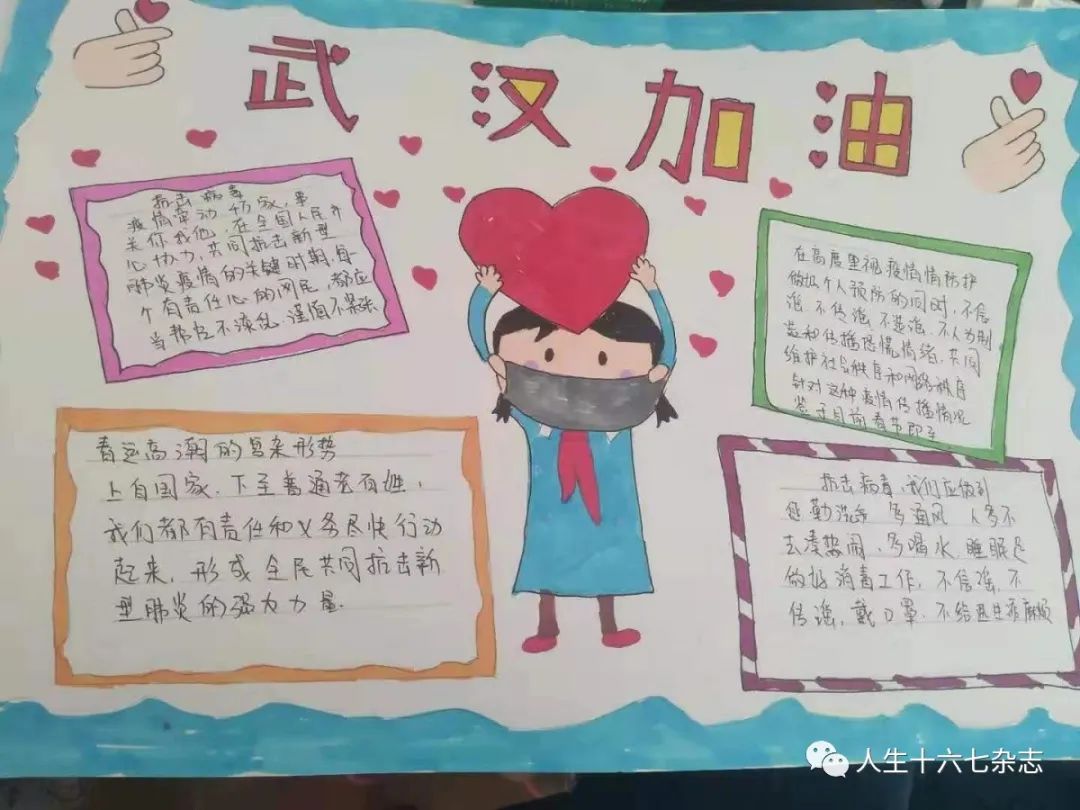 武汉加油
抗击病毒
疫情牵动万家,事
关你我他,在全国人民齐
心协力,共同抗击新型
肺炎疫情的关键时期,每一
个有责任心的网民,都应
当帮忙不添乱,谨慎不
在高度重视疫情情防护
做好个人预防的同时,不信
谣、不传谣、不造谣,不人为制
造和传播恐慌情绪,共同
维护社会秩序和网络秩序
针对这种疫情传播情况
鉴于目前春节即
春运高潮的复杂形势
上自国家,下至普通老百姓,
我们都有责任和义务尽快行动
起来,形成全民共同抗击新
型肺炎的强大力量.
抗击病毒,我们应做到
勤洗手 多通风 人多不
去凑热闹,多喝水,睡眠足
做好消毒工作,不信谣,不
传谣,戴口罩,不给医生添麻烦
人生十六七杂志